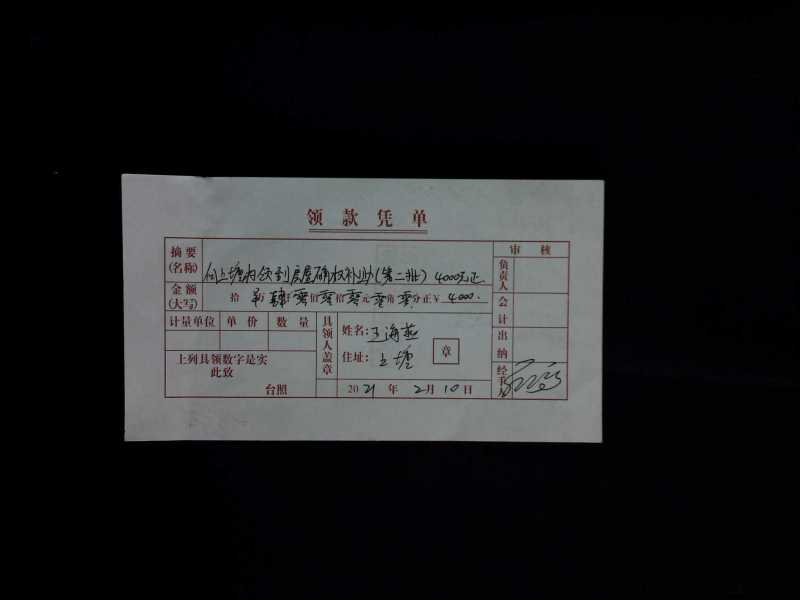 领款凭单
摘要
(名称)
向上塘村领到房屋确权补助(第二批) 4000元正
金额
(大写)
拾 万 肆仟零佰零拾零元零角零分正¥ 4000.
计量单位 单价 数量
上列具领数字是实
此致
台照
具领人盖章
姓名: 王海燕
住址: 上塘
章
2021年 2月10日
审核
负责人
会计
出纳
经手人